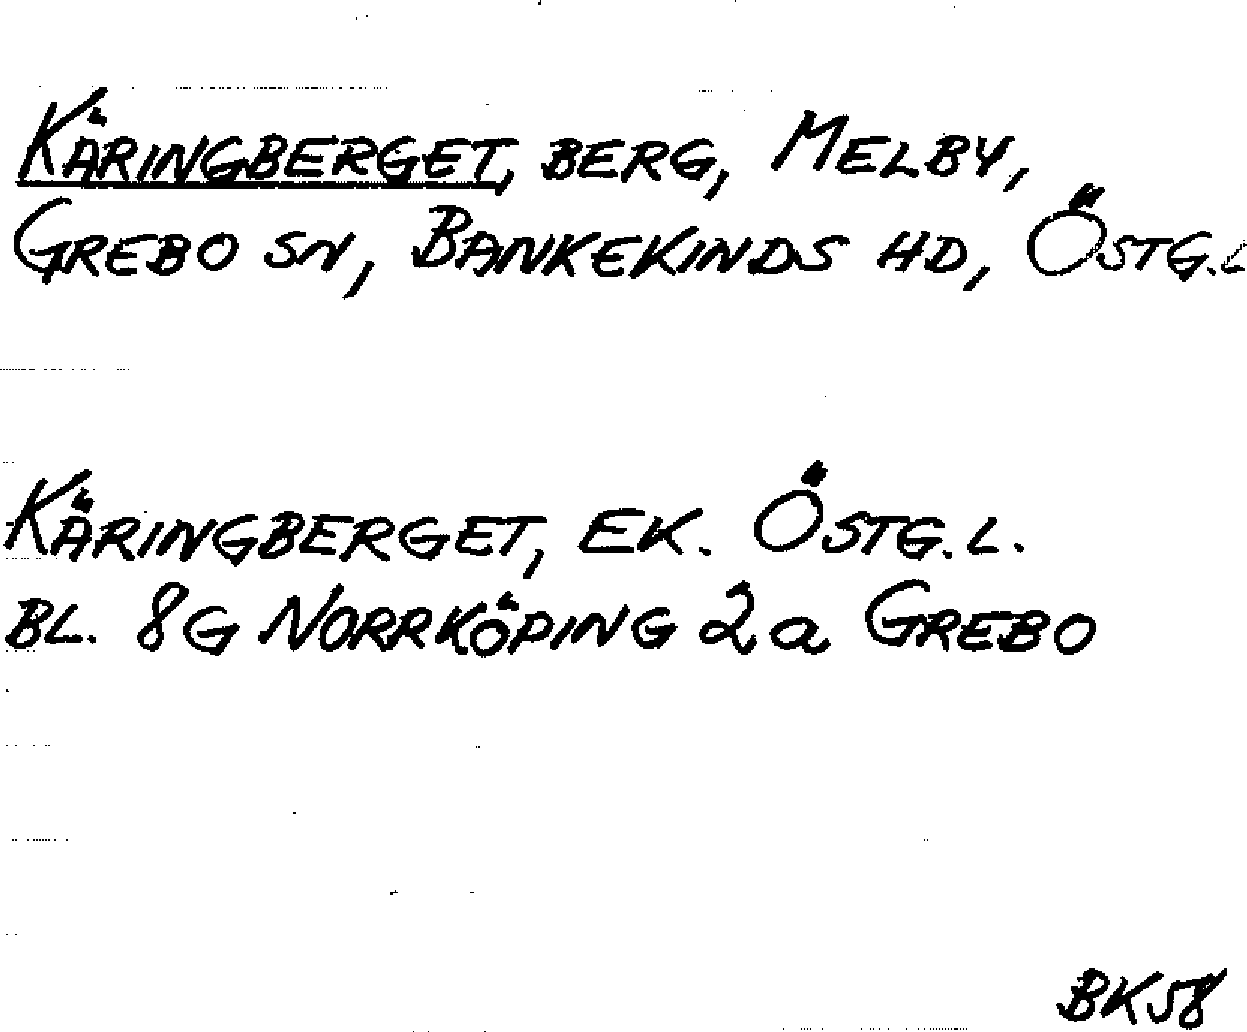 KÄRINGBERGET, BERG, MELBY,
GREBO SN, BANKEKINDS HD, ÖSTG.L
KÄRINGBERGET, EK. ÖSTG.L.
BL. 8G NORRKÖPING 2a GREBO
BK58